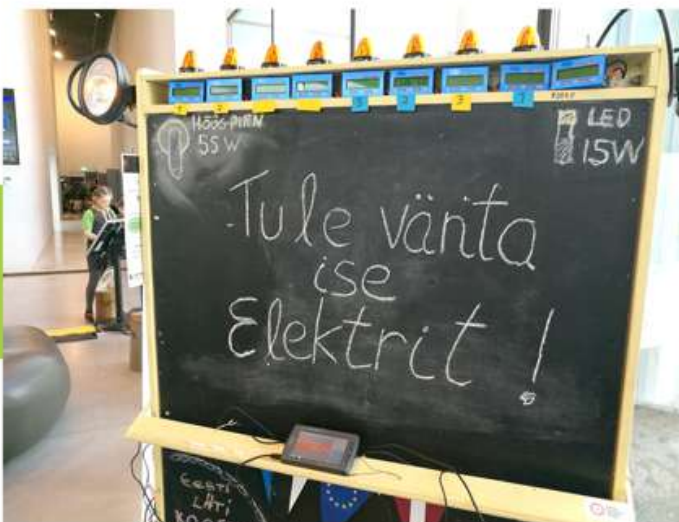 HÕÕG-PIRN
55 W
LED
15W
Tule vänta
ise
Elektrit!
EESTI
LÄTI